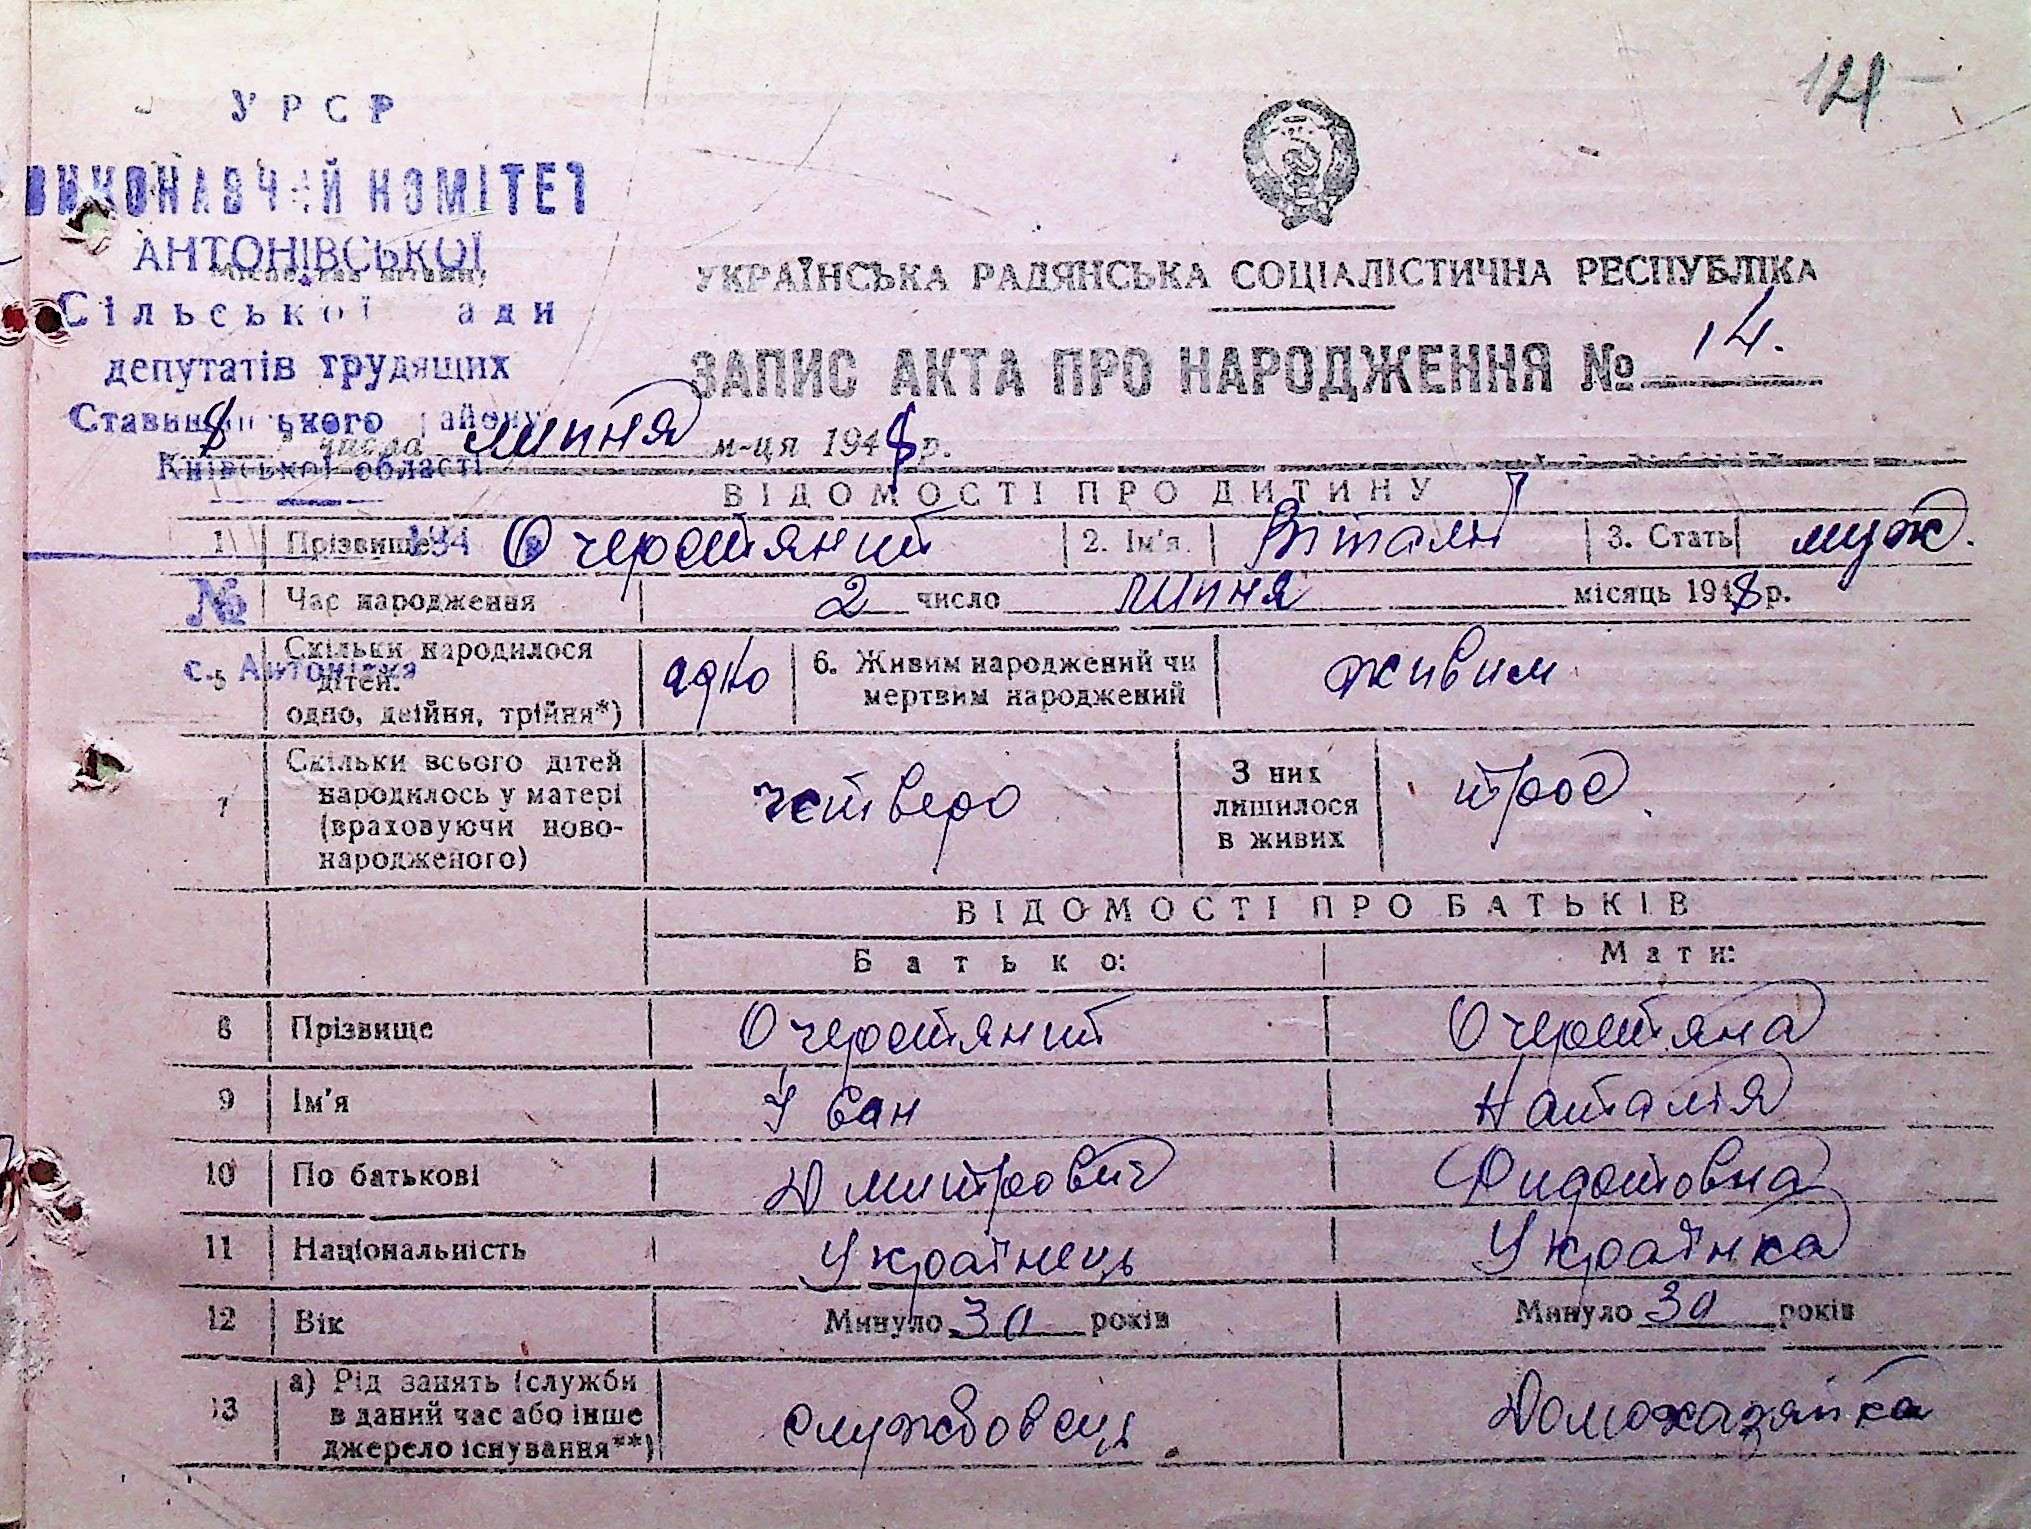 121
У Р С Р
ВИКОНАВЧИЙ КОМІТЕТ
АНТОНІВСЬКОЇ
Сільської ради
депутатів трудящих
Ставищенського району
Київської області
194
№
с. Антонівка
УКРАЇНСЬКА РАДЯНСЬКА СОЦІАЛІСТИЧНА РЕСПУБЛІКА
ЗАПИС АКТА ПРО НАРОДЖЕННЯ № 14.
8 числа липня м-ця 1948 р.
ВІДОМОСТІ ПРО ДИТИНУ
1 Прізвище Очеретяний 2. Ім'я Віталій 3. Стать муж.
Час народження 2 число липня місяць 1948 р.
5 Скільки народилося дітей. одно, двійня, трійня*) одно 6. Живим народжений чи мертвим народжений живим
7 Скільки всього дітей народилось у матері (враховуючи новонародженого) четверо З них лишилося в живих троє.
ВІДОМОСТІ ПРО БАТЬКІВ
Батько: Мати:
8 Прізвище Очеретяний Очеретяна
9 Ім'я Іван Наталія
10 По батькові Дмитрович Федотовна
11 Національність Українець Українка
12 Вік Минуло 30 років Минуло 30 років
13 а) Рід занять (служби в даний час або інше джерело існування**) службовець. Домохазяйка